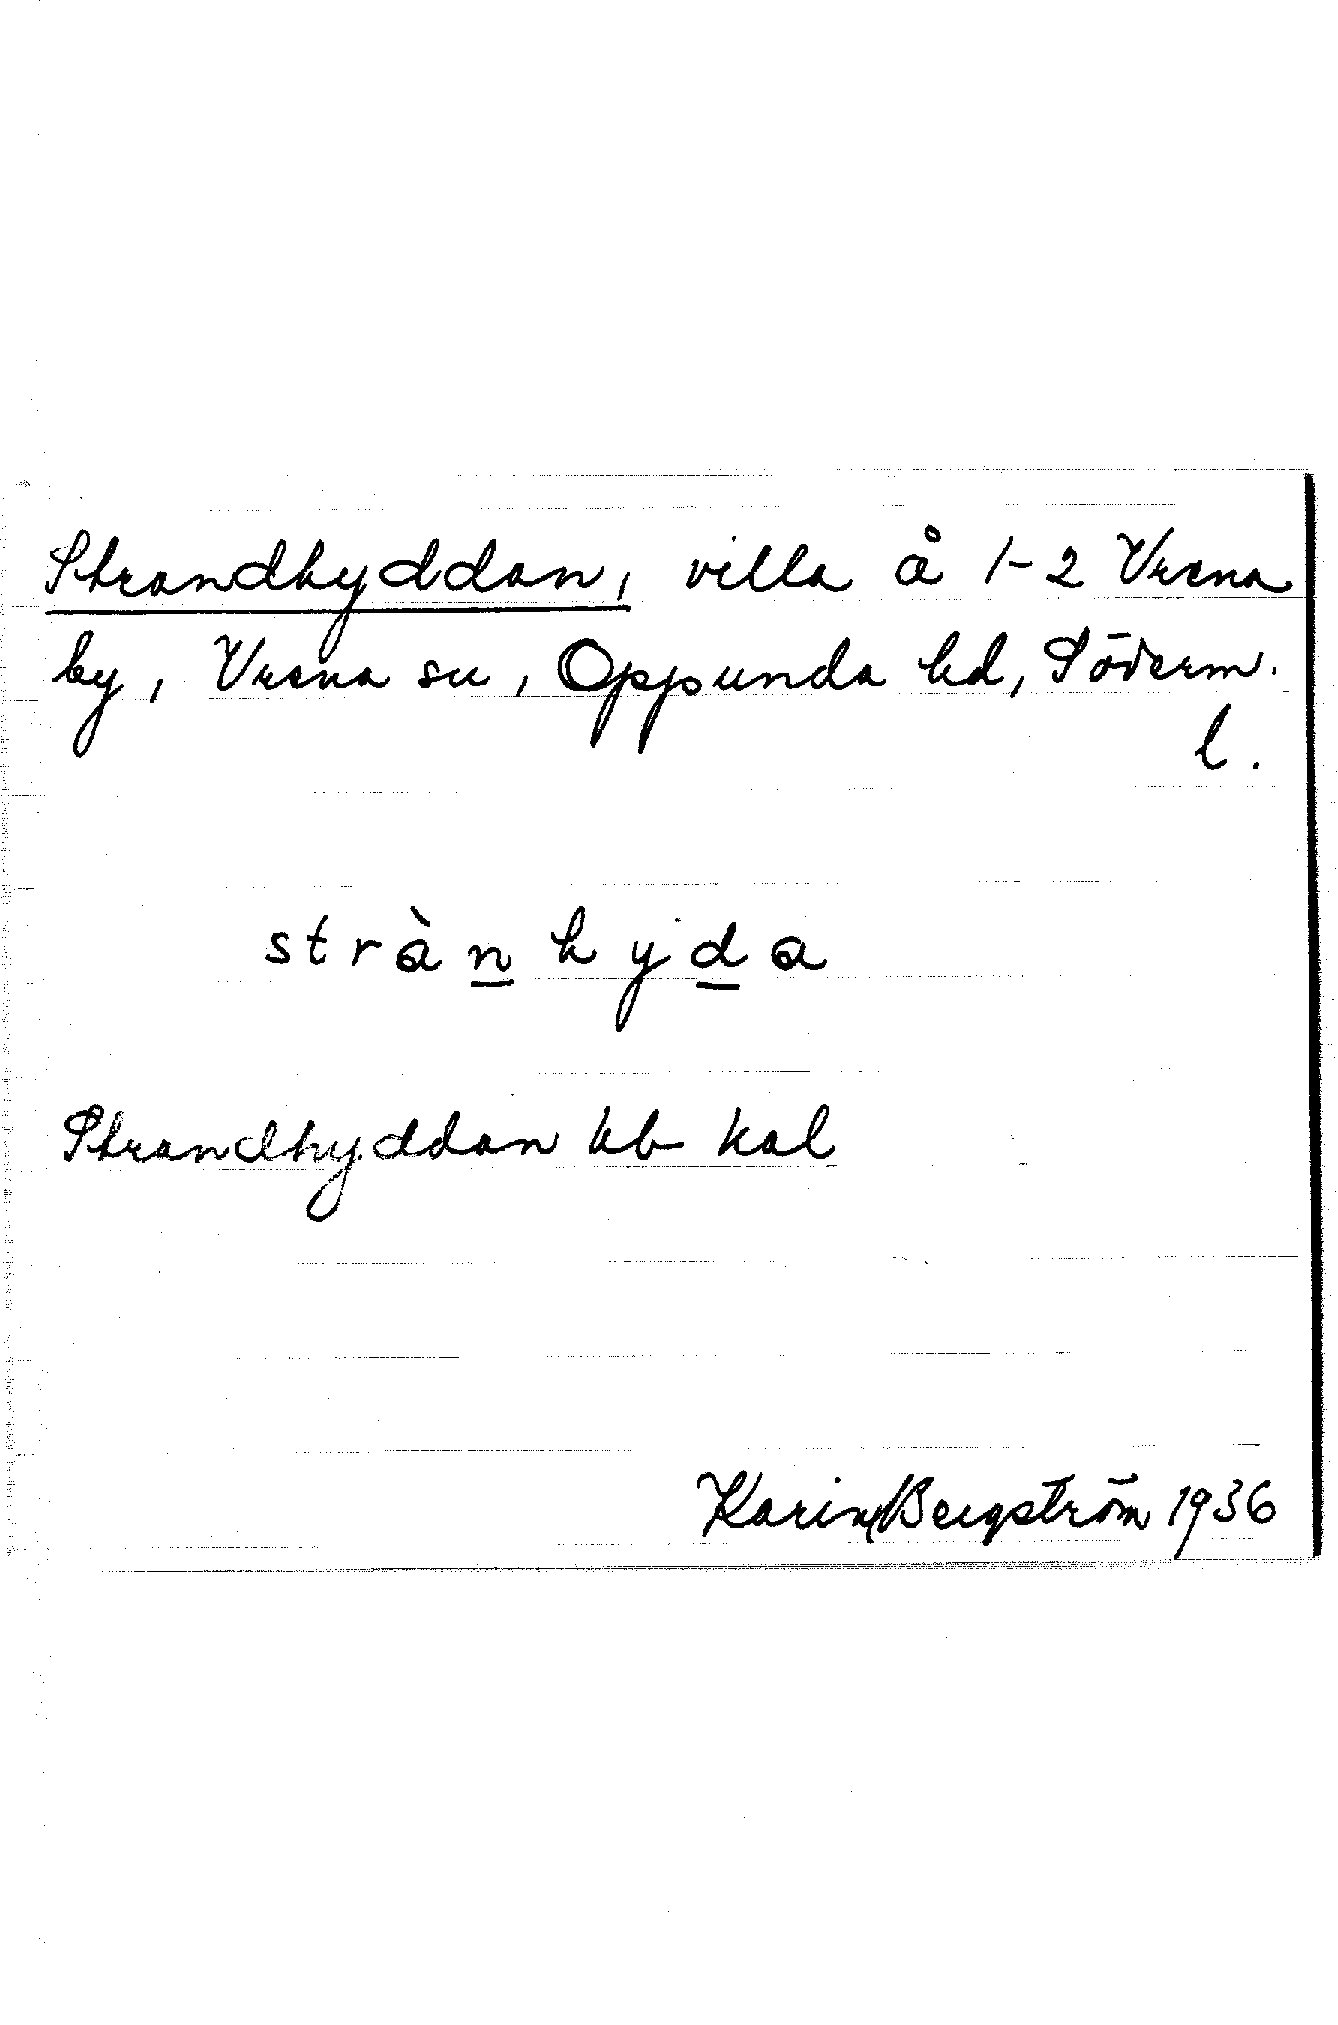 Strandhyddan, villa å 1-2 Vrena
by, Vrena sn, Oppunda hd, Söderm.
l.
stràn̲hyd̲a
Strandhyddan kb kal
Karin Bergström 1936